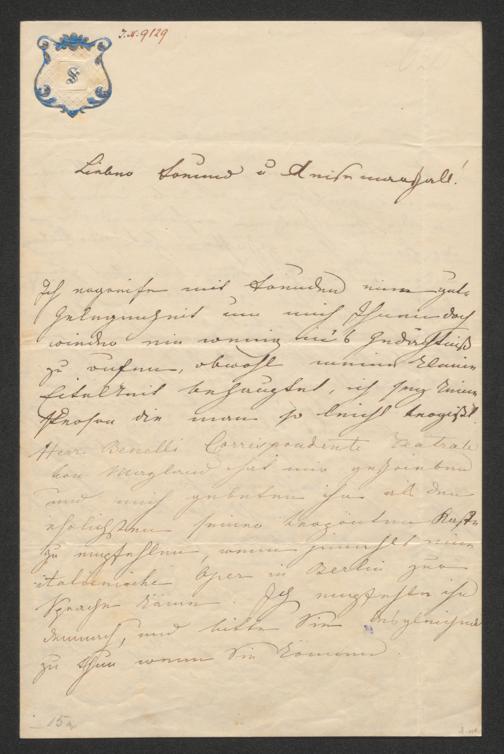 J.N. 9129
Lieber Freund u Reisemarschall!
Ich ergreife mit Freuden eine gute
Gelegenheit um mich Ihnen doch
wieder ein wenig in's Gedächtniß
zu rufen, obwohl meine kleine
Eitelkeit behauptet, ich sey keine
Person die man so leicht vergißt
Herr Benelli Corrispondente Teatrale
von Mayland hat mir geschrieben
und mich gebeten ihn als den
ehrlichsten seiner Kaste
zu empfehlen, wenn jemahls eine
italienische Oper in Berlin zur
Sprache käme. Ich empfehle ihn
demnach, und bitte Sie desgleichen
zu thun wenn Sie können.
15a